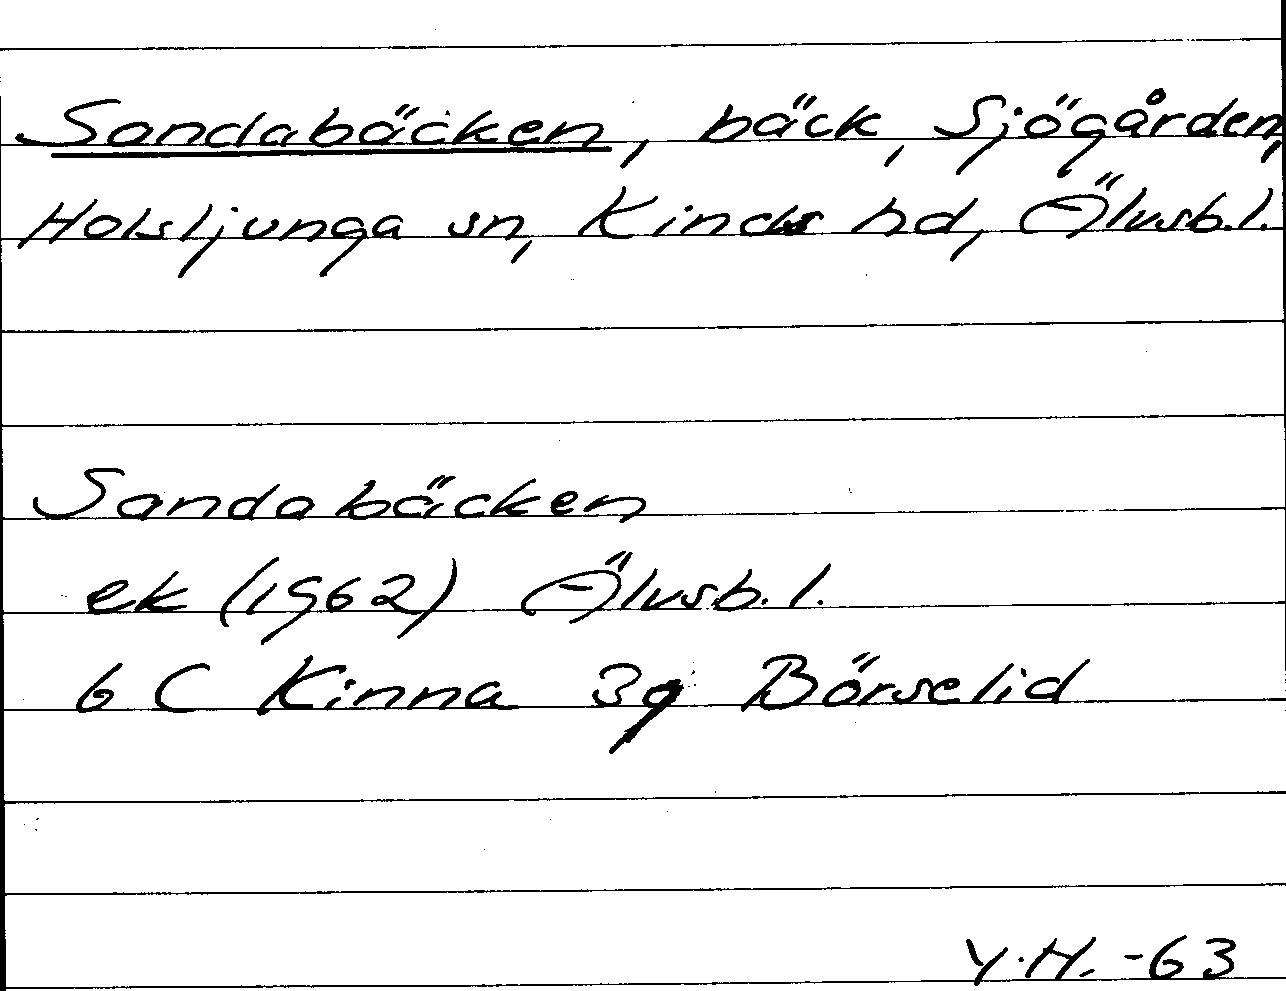 Sandabäcken, bäck, Sjögården,
Holsljunga sn, Kinds hd, Älvsb.l.
Sandabäcken
ek (1962) Älvsb.l.
6 C Kinna 3g Börselid
Y.H. -63